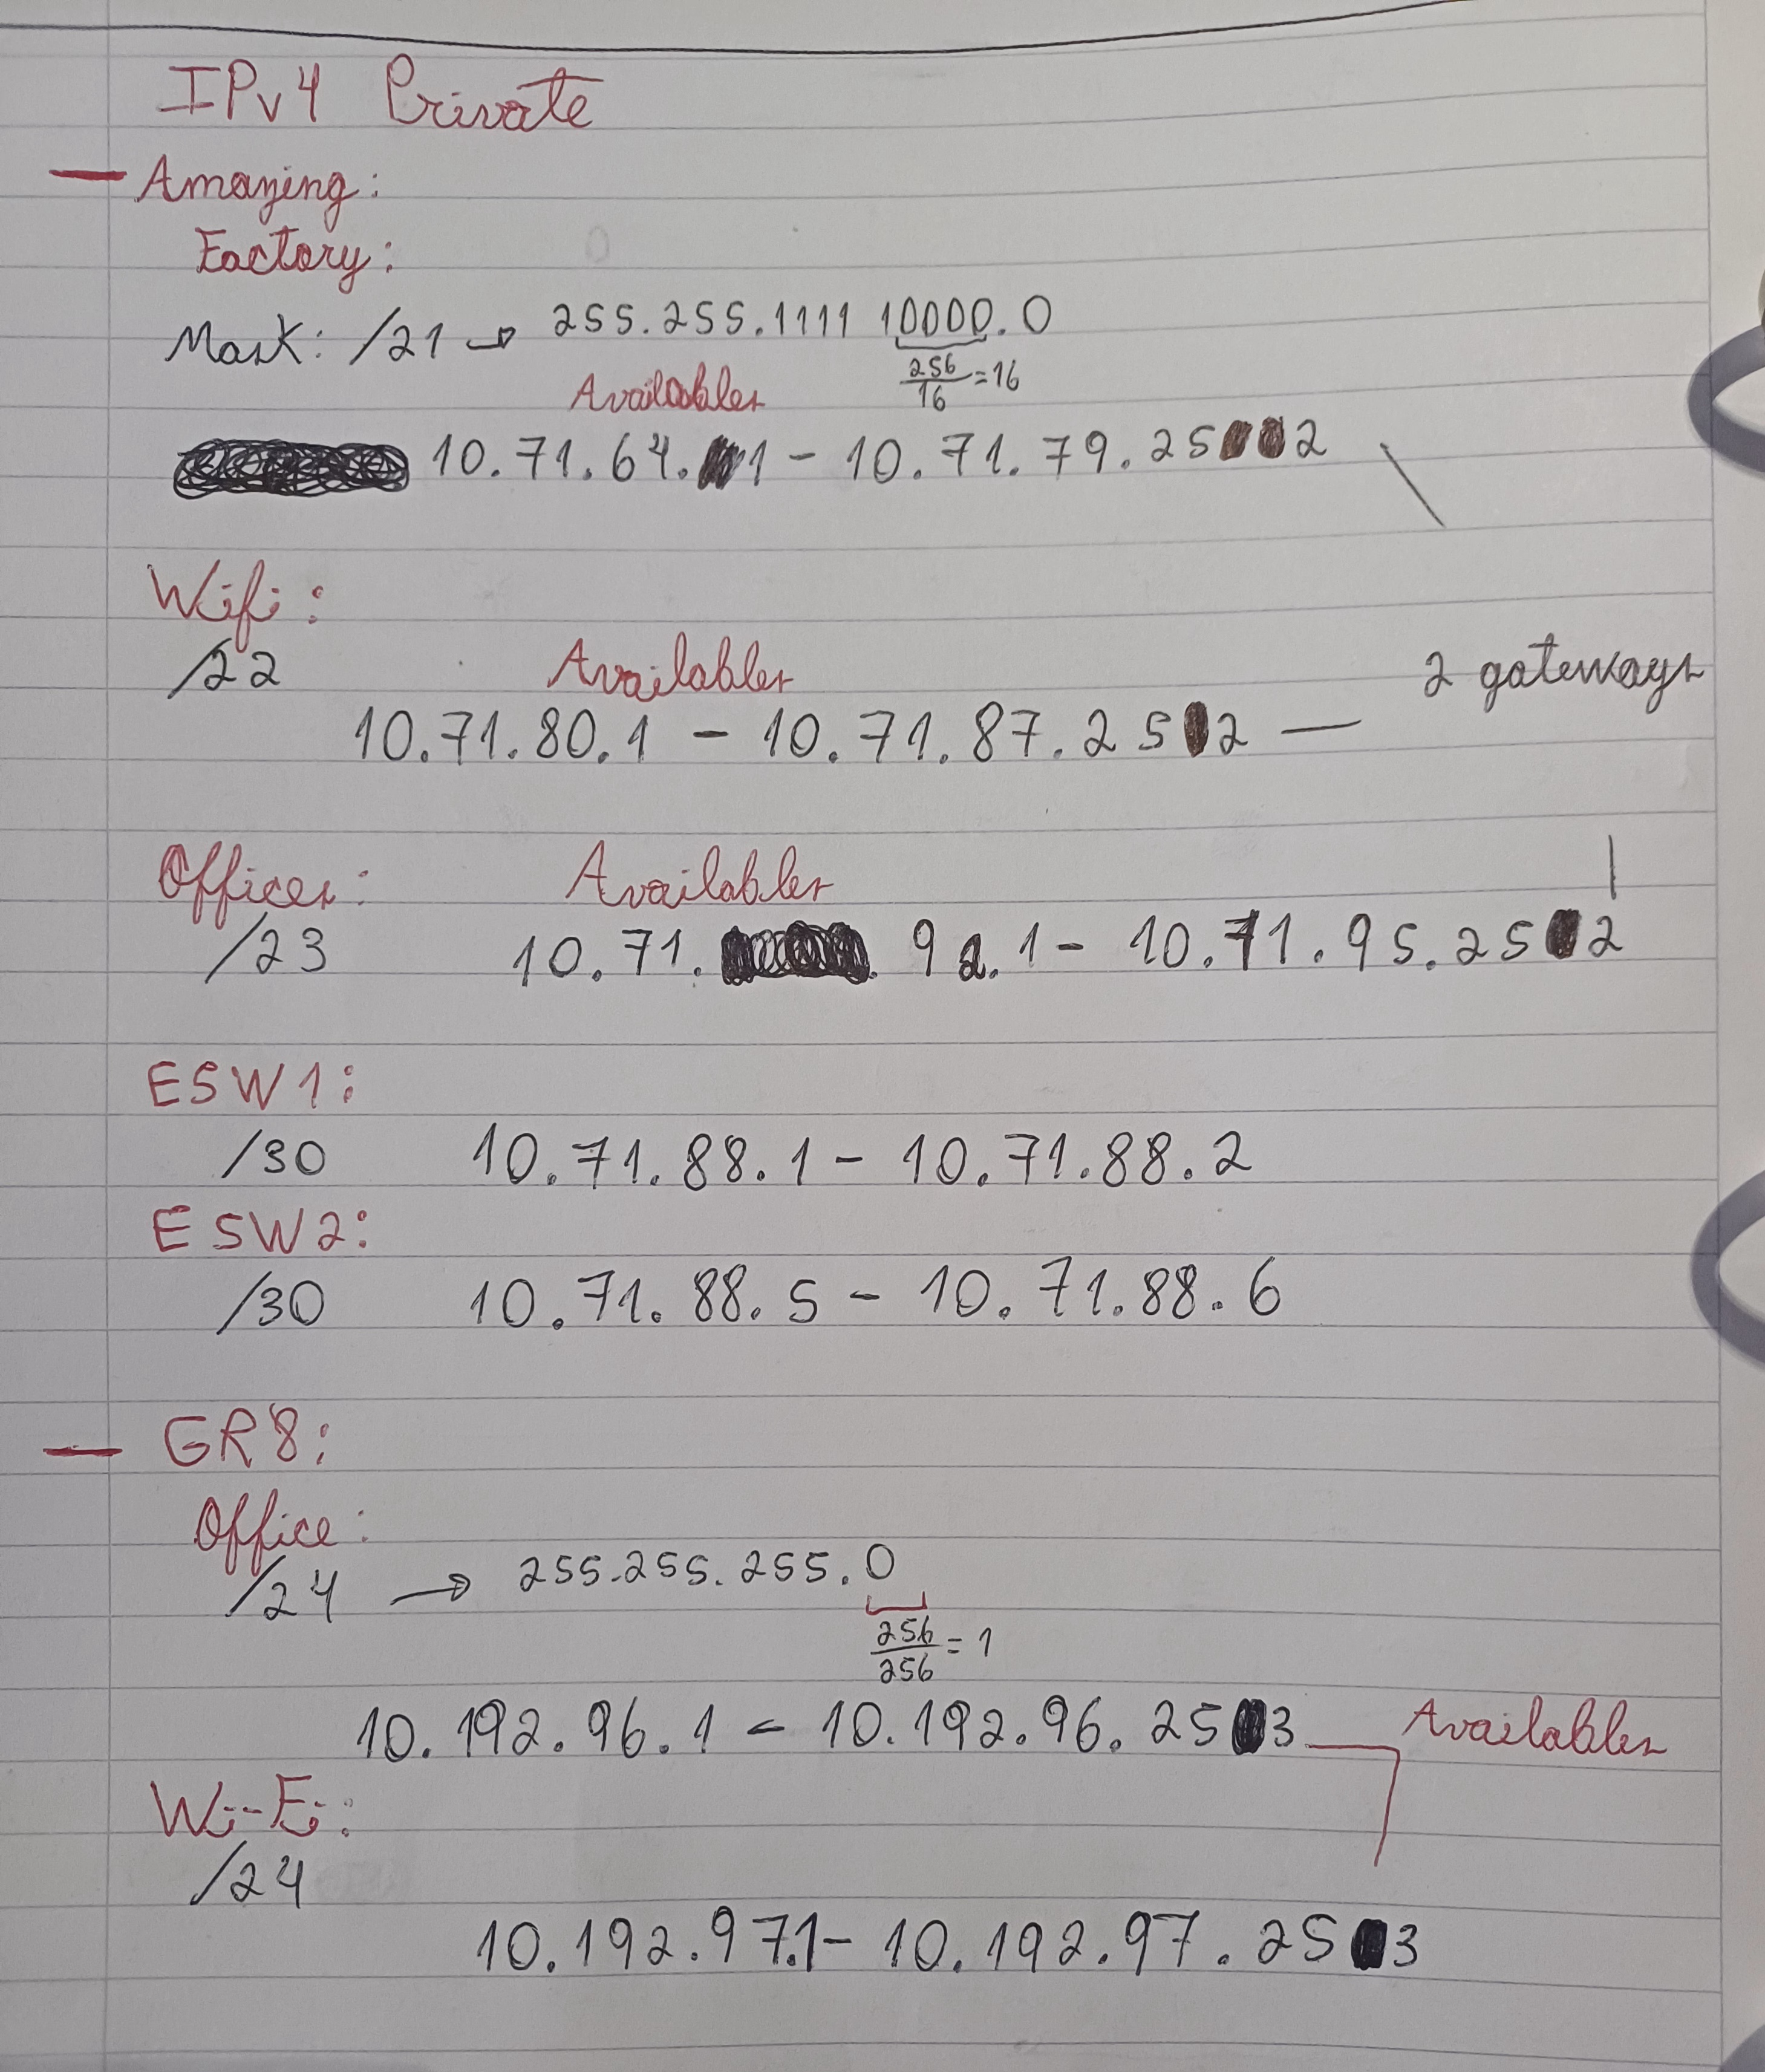 IPv4 Private
— Amazing:
Factory:
Mask: /21 → 255.255.1111 10000.0
256/16 = 16
Availables
10.71.64.1 - 10.71.79.252
Wifi:
/22 Availables
2 gateways
10.71.80.1 - 10.71.87.252 —
Offices: Availables
/23 10.71. 92.1 - 10.71.95.252
ESW1:
/30 10.71.88.1 - 10.71.88.2
ESW2:
/30 10.71.88.5 - 10.71.88.6
— GR8:
Office:
/24 → 255.255.255.0
256/256 = 1
10.192.96.1 - 10.192.96.253 Availables
Wi-Fi:
/24
10.192.97.1 - 10.192.97.253